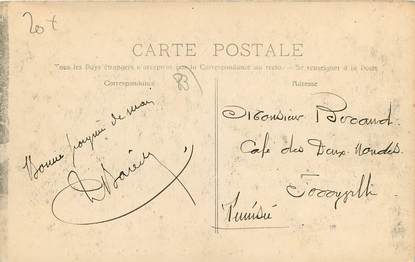 20 f
CARTE POSTALE
Tous les Pays étrangers n'acceptent pas la Correspondance au recto. - Se renseigner à la Poste
Correspondance
Adresse
Bonne poignée de main
Monsieur
Café des Deux Mondes
Tunisie